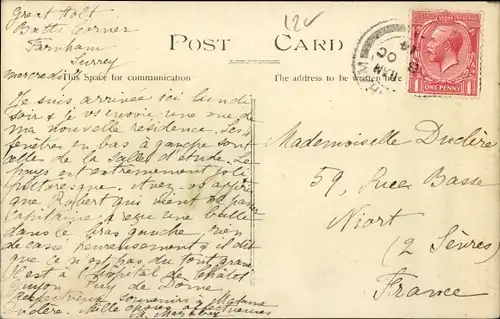 Great Holt
Batts Corner
Farnham
Surrey
12v
POST CARD
mercredi 7
This Space for communication
The address to be written
Je suis arrivée ici lundi
soir & je vs envoie une vue de
ma nouvelle résidence. Les
fenêtres en bas à gauche sont
celles de la salle d'étude. Le
pays est extrêmement joli
pittoresque. Avez-vs appris
que Robert qui vient de passer
Capitaine a reçu une balle
dans le bras gauche, rien
de cassé heureusement & il dit
que ce n'est pas du tout grave
Il est à l'hôpital de Châtel
Guyon Puy de Dôme
Respectueux souvenirs à Madame
Duclère. Mille choses affectueuses
M.
Mademoiselle Duclère
59, Rue Basse
Niort
(2 Sèvres)
France
AM
OC
ONE PENNY
1 1